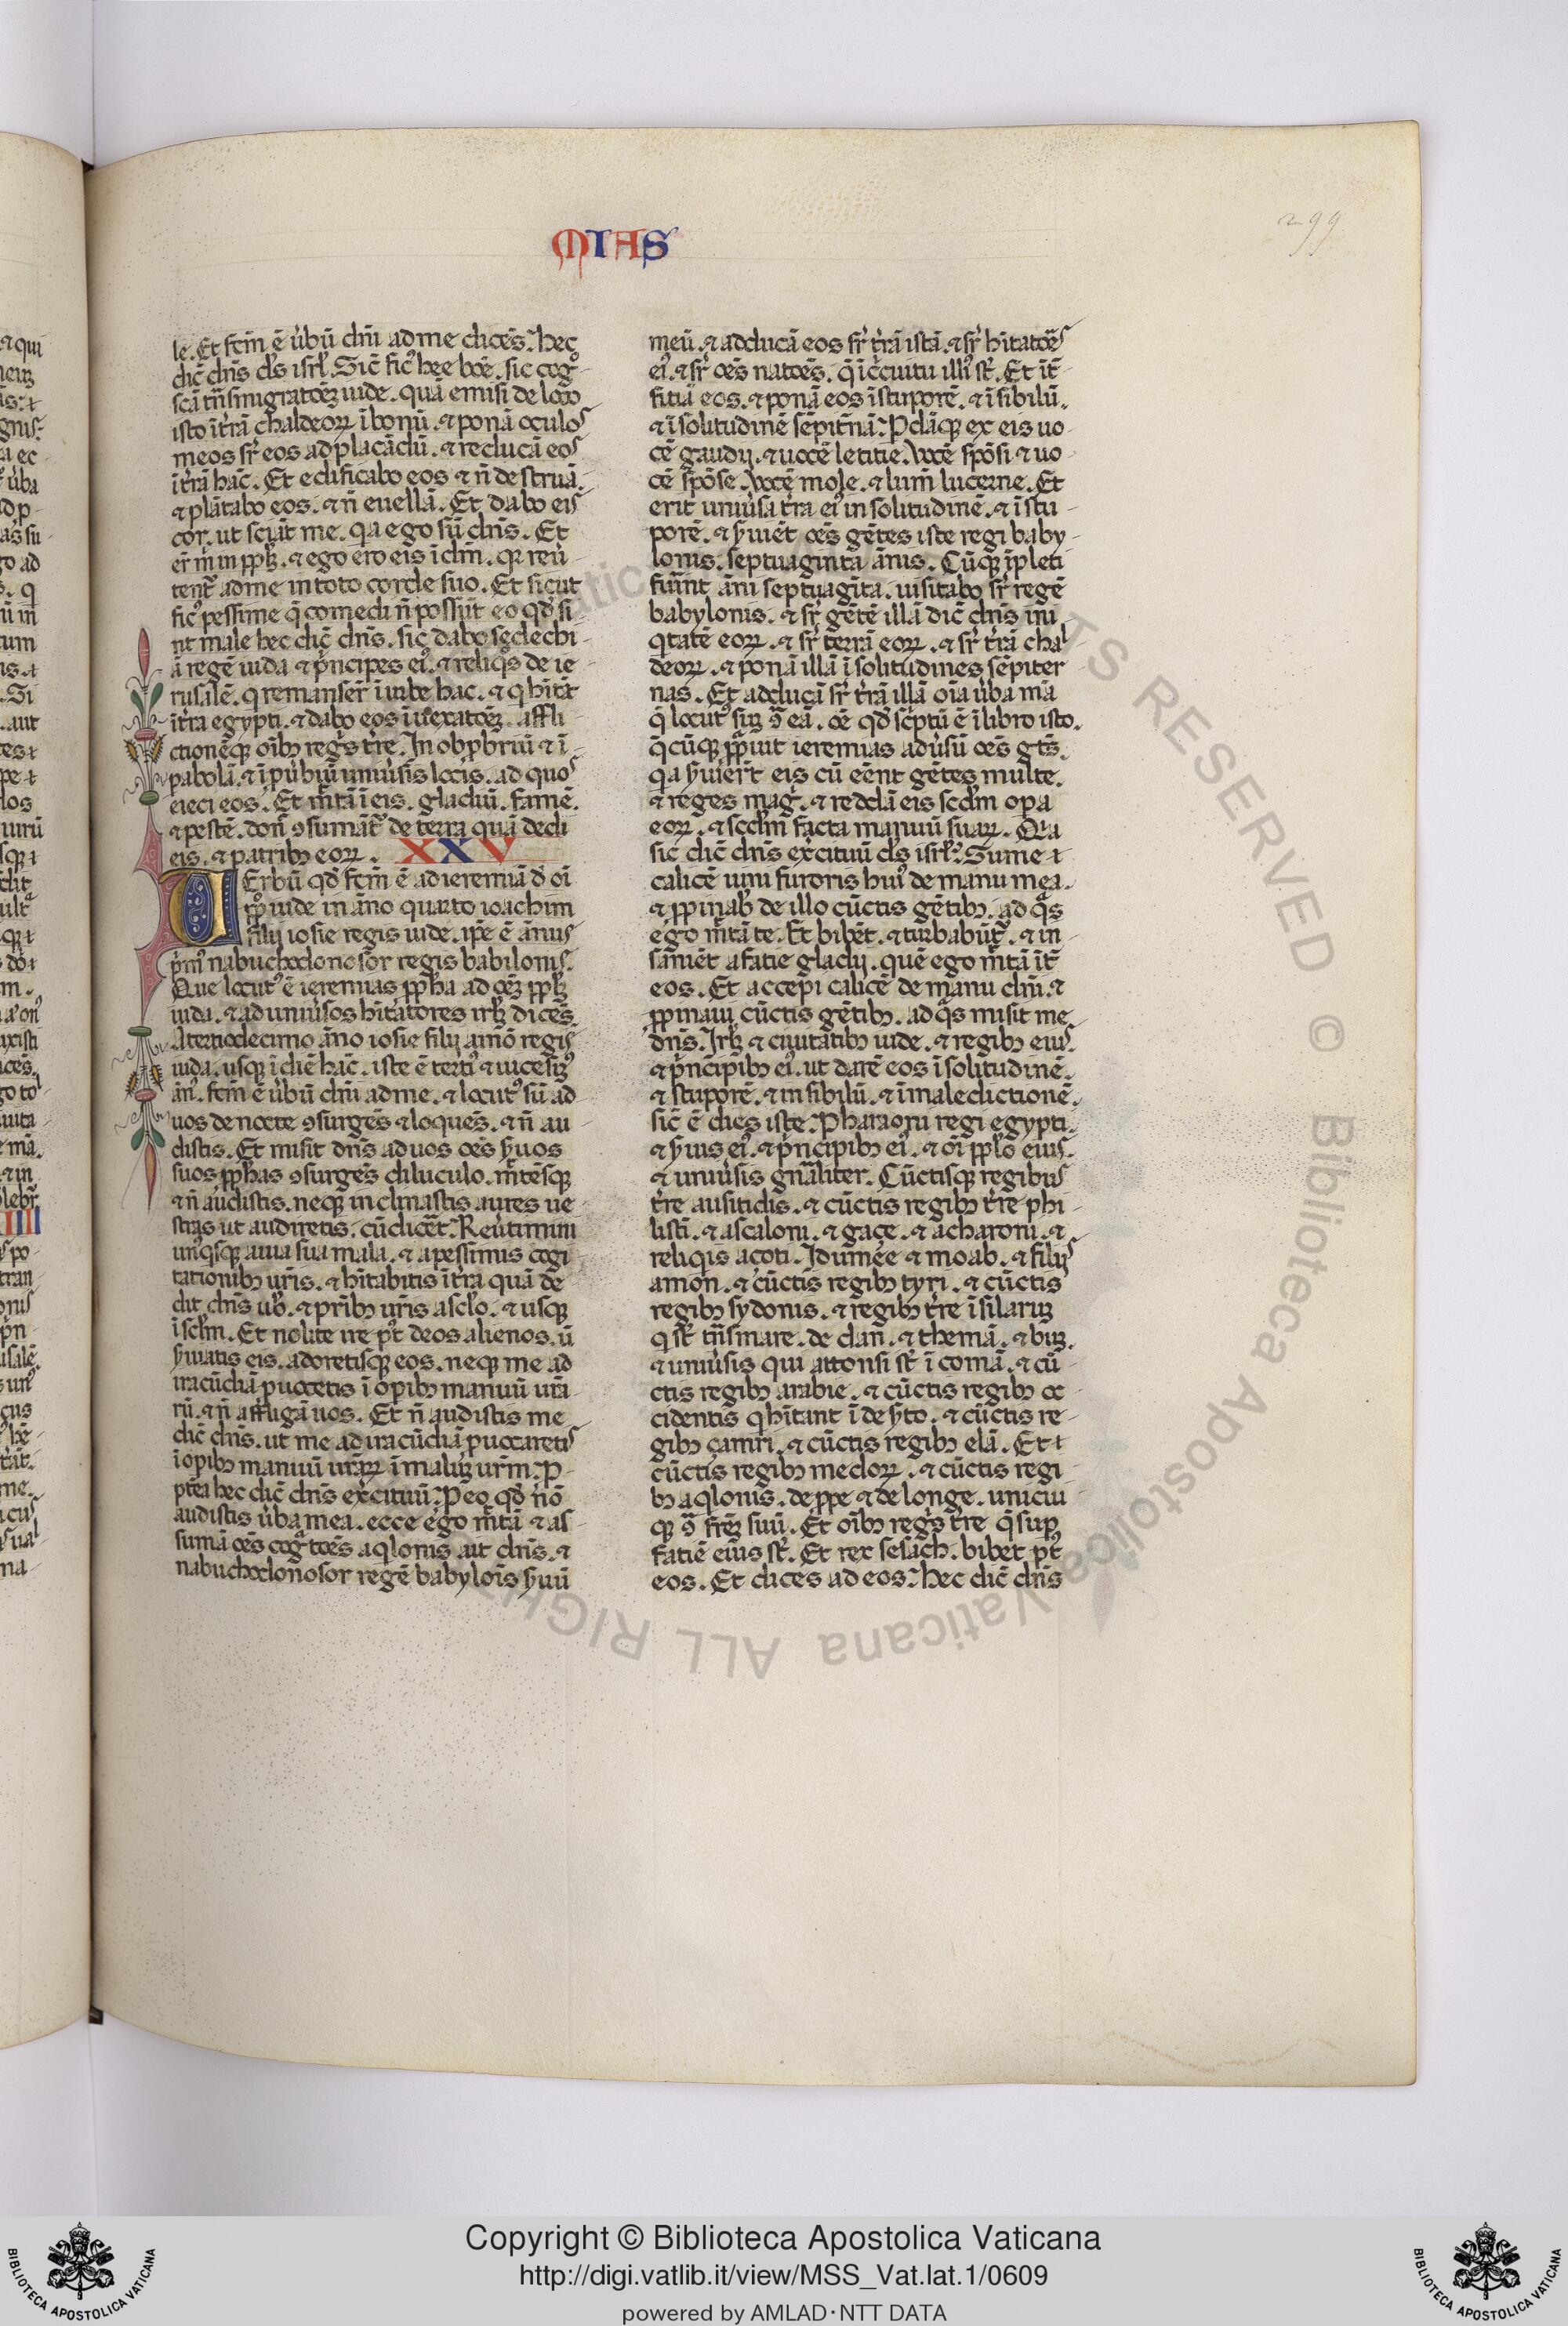 MIAS
299
le. Et fcm̄ ē ūbū dn̄i ad me dicēs. hec
dic̄ dn̄s ds̄ isrl̄. Sic̄ fic⁹ hee boē. sic cog͛
scā trn̄smigratōeȝ iude. quā emisi de loco
isto ī tr̄ā chaldeoꝝ ī bonū. ⁊ ponā oculos
meos sr̄ eos ad placādū. ⁊ reducā eos
ī tr̄ā hāc. Et edificabo eos ⁊ n̄ destruā.
⁊ plātabo eos. ⁊ n̄ euellā. Et dabo eis
cor. ut sciāt me. qa ego sū dn̄s. Et
er̄t m̄ in ppl̄ȝ. ⁊ ego ero eis ī dm̄. qr reu͛
tent͛ ad me in toto corde suo. Et sicut
fic⁹ pessime q̄ comedi n̄ possūt eo qđ si
nt male hec dic̄ dn̄s. sic dabo sedechi
ā regē iuda ⁊ p̄ncipes ei⁹. ⁊ reliq̄s de ie
rusalē. q remanser̄ ī urbe hac. ⁊ q hītāt
ī tr̄a egypti. ⁊ dabo eos ī uexatōeȝ. affli
ctionēqꝫ oīb⁊ regn̄s tr̄re. In obp̄briū ⁊ ī
pabolā. ⁊ ī pu͛biū ī uniu͛sis locis. ad quos
eieci eos. Et mr̄tā ī eis. gladiū. famē.
⁊ pestē. don̄ ꝯsumāt͛ de terra quā dedi
eis. ⁊ patrib⁊ eoꝝ. XXV
UErbū qđ fcm̄ ē ad ieremiā đ oī
pp̄lo iude in āno quarto ioachim
filij iosie regis iude. ip̄e ē ānus
p̄m⁹ nabuchodonosor regis babilonis.
Que locut⁹ ē ieremias pp̄ha ad oeȝ ppl̄ȝ
iuda. ⁊ ad uniu͛sos hītatores irl̄ȝ dicēs.
A tertiodecimo āno iosie filij amō regis
iuda. usqꝫ ī diē hāc. iste ē terti⁹ ⁊ uicesiȝ⁹
ān⁹. fcm̄ ē ūbū dn̄i ad me. ⁊ locut⁹ sū ad
uos de nocte ꝯsurgēs ⁊ loquēs. ⁊ n̄ au
distis. Et misit dn̄s ad uos oēs s͛uos
suos pp̄has ꝯsurgēs diluculo. mr̄tēsqꝫ
⁊ n̄ audistis. neqꝫ inclinastis aures ue
stras ut audiretis. cū dicēt. Reu͛timini
un̄qsqꝫ a uia sua mala. ⁊ a pessimus cogi
tationib⁊ ur̄is. ⁊ hītabitis ī tr̄a quā de
dit dn̄s ub̄. ⁊ pr̄ib⁊ ur̄is a sclo. ⁊ usqꝫ
ī sclm̄. Et nolite ire p̄t deos alienos. ū
s͛uiatis eis. adoretisqꝫ eos. neqꝫ me ad
iracūdiā puocetis ī opib⁊ manuū ur̄a
rū. ⁊ n̄ affligā uos. Et n̄ audistis me
dic̄ dn̄s. ut me ad iracūdiā puocaretis
ī opib⁊ manuū ur̄aꝝ ī maluȝ ur̄m. P
pt̄ea hec dic̄ dn̄s exc͛ituū. P eo qđ nō
audistis ūba mea. ecce ego mr̄tā ⁊ as
sumā oēs cog͛tōes aqlonis ait dn̄s. ⁊
nabuchodonosor regē babylois̄ s͛uū
meū. ⁊ adducā eos sr̄ tr̄ā istā. ⁊ sr̄ hītatōēs
ei⁹. ⁊ sr̄ oēs natōes. q̄ ī c͛cuitu illi⁹ st̄. Et it̄
fitiā eos. ⁊ ponā eos ī stuporē. ⁊ ī sibilū.
⁊ ī solitudinē sēpit͛nā. Pdāqꝫ ex eis uo
cē gaudij. ⁊ uocē letitie. Uocē spōsi ⁊ uo
cē spōse. Uocē mole. ⁊ lum̄ lucerne. Et
erit uniu͛sa tr̄ra ei⁹ in solitudinē. ⁊ ī stu
porē. ⁊ s͛uiēt oēs gētes iste regi baby
lonis. septuaginta ānis. Cūqꝫ īpleti
fuīnt āni septuagīta. uisitabo sr̄ regē
babylonis. ⁊ sr̄ gētē illā dic̄ dn̄s ini
qtatē eoꝝ. ⁊ sr̄ terrā eoꝝ. ⁊ sr̄ tr̄ā chal
deoꝝ. ⁊ ponā illā ī solitudines sēpiter
nas. Et adducā sr̄ tr̄ā illā oīa ūba mā
q̄ locut⁹ suȝ ꝯ̄ eā. oē qđ sc͛ptū ē ī libro isto.
q̄cūqꝫ pp̄iuit ieremias adu͛sū oēs gt̄s.
qa s͛uier̄t eis cū eēnt gētes multe.
⁊ reges mag͛. ⁊ reddā eis scdm̄ opa
eoꝝ. ⁊ scdm̄ facta manuū suaꝝ. Qia
sic dic̄ dn̄s exc͛ituū ds̄ isrl̄. Sume ⁊
calicē uini furoris hui⁹ de manu mea.
⁊ ppinab͛ de illo cūctis gētib⁊. ad q̄s
ego mr̄tā te. Et bibēt. ⁊ turbabūt͛. ⁊ in
saniēt a fatie gladij. quē ego mr̄tā it̄
eos. Et accepi calicē de manu dn̄i. ⁊
ppinaui cūctis gētib⁊. ad q̄s misit me
dn̄s. Irl̄ȝ ⁊ ciuitatib⁊ iude. ⁊ regib⁊ eius.
⁊ p̄ncipib⁊ ei⁹. ut darē eos ī solitudinē.
⁊ stuporē. ⁊ in sibilū. ⁊ ī maledictionē.
sic̄ ē dies iste. Pharaoni regi egypti.
⁊ s͛uis ei⁹. ⁊ p̄ncipib⁊ ei⁹. ⁊ oī pp̄lo eius.
⁊ uniu͛sis gn̄aliter. Cūctisqꝫ regibus
tr̄re ausitidis. ⁊ cūctis regib⁊ tr̄re phi
listī. ⁊ ascaloni. ⁊ gaçe. ⁊ acharoni. ⁊
reliqis açoti. Idumee ⁊ moab. ⁊ filijs
amon. ⁊ cūctis regib⁊ tyri. ⁊ cūctis
regib⁊ sydonis. ⁊ regib⁊ tr̄re īsilaruȝ
q st̄ trn̄s mare. de dan̄. ⁊ themā. ⁊ buȝ.
⁊ uniu͛sis qui attonsi st̄ ī comā. ⁊ cū
ctis regib⁊ arabie. ⁊ cūctis regib⁊ oc
cidentis q hītant ī des͛to. ⁊ cūctis re
gib⁊ çamri. ⁊ cūctis regib⁊ elā. Et ⁊
cūctis regib⁊ medoꝝ. ⁊ cūctis regi
b⁊ aqlonis. de ppe ⁊ de longe. unicui
qꝫ ꝯ̄ fr̄eȝ suū. Et oīb⁊ regn̄s tr̄re q̄ sup
fatiē eius st̄. Et rex sesach. bibet p̄t
eos. Et dices ad eos. hec dic̄ dn̄s
Copyright © Biblioteca Apostolica Vaticana
http://digi.vatlib.it/view/MSS_Vat.lat.1/0609
powered by AMLAD·NTT DATA
BIBLIOTECA APOSTOLICA VATICANA
BIBLIOTECA APOSTOLICA VATICANA
© Biblioteca Apostolica Vaticana ALL RIGHTS RESERVED